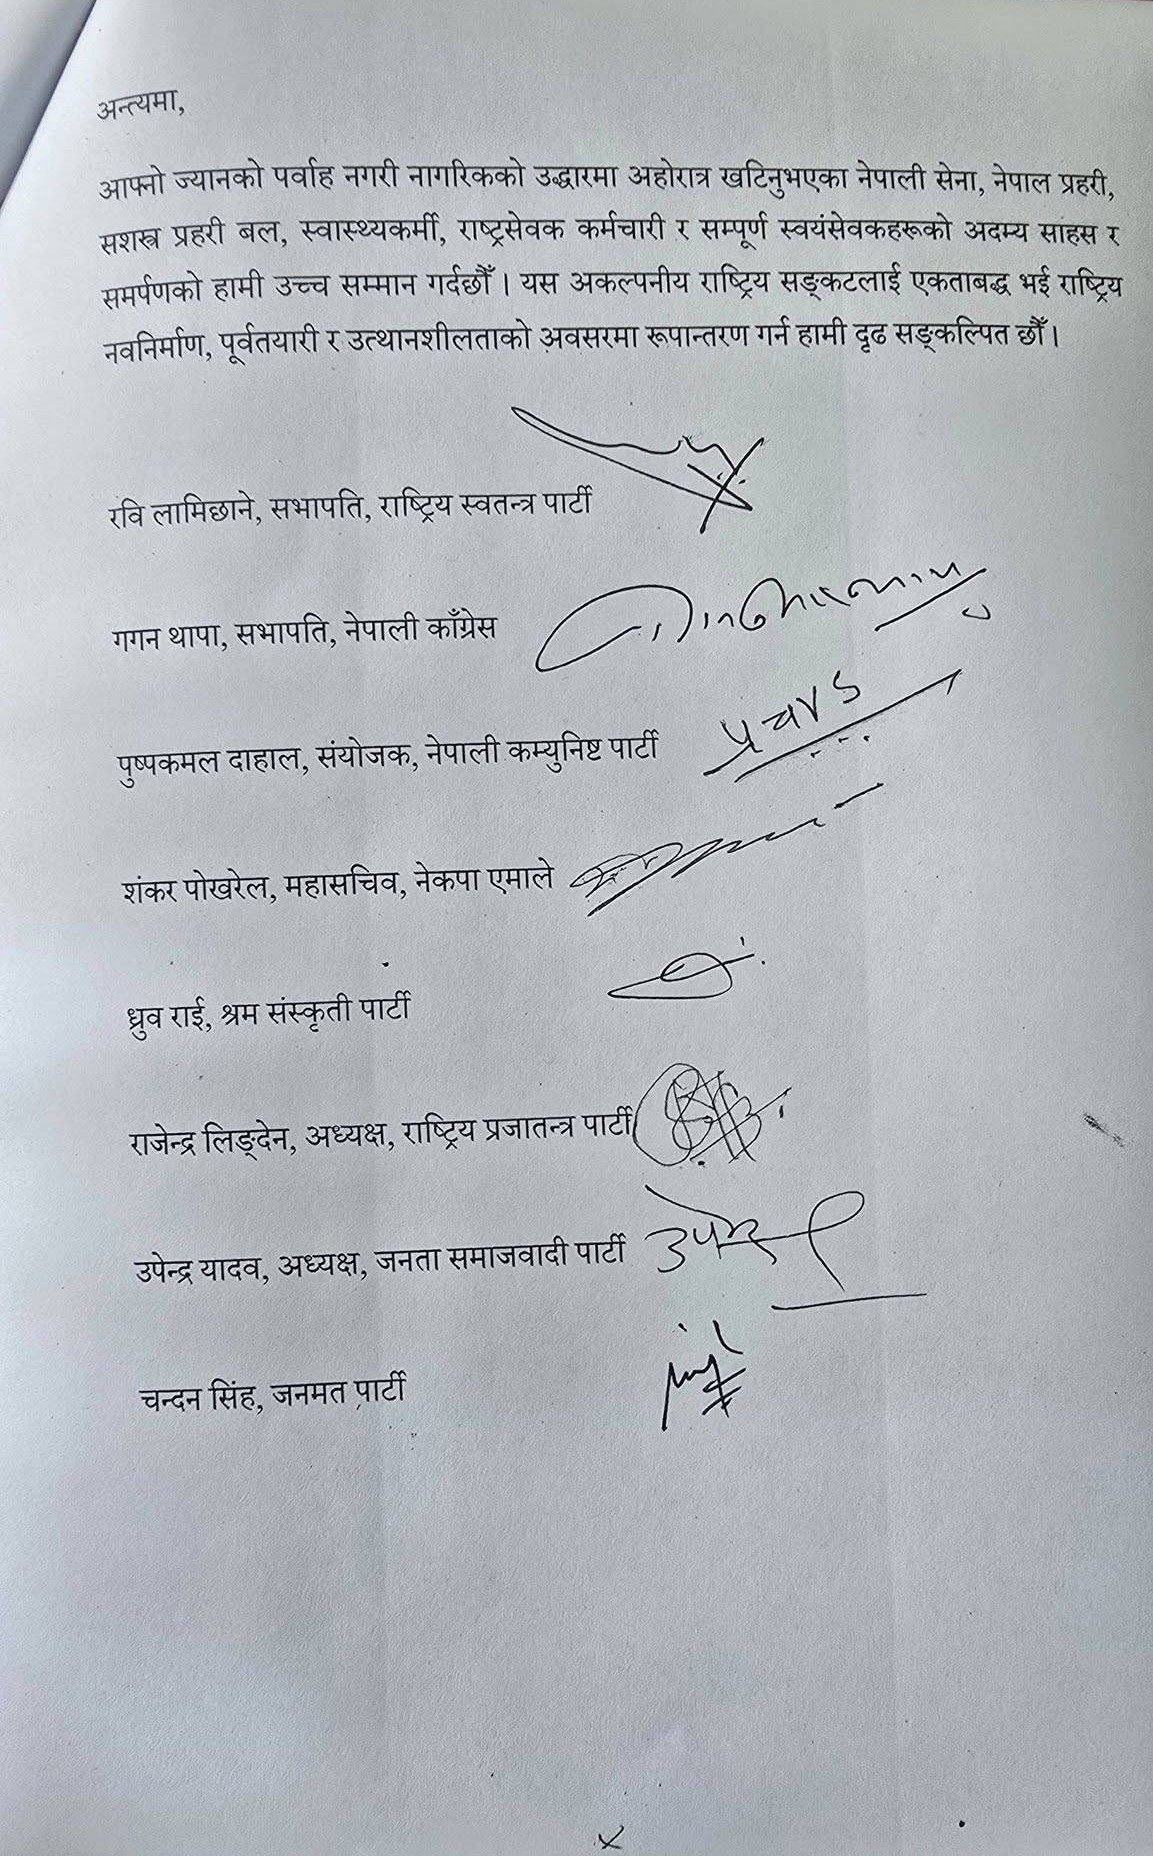 अन्त्यमा,
आफ्नो ज्यानको पर्वाह नगरी नागरिकको उद्धारमा अहोरात्र खटिनुभएका नेपाली सेना, नेपाल प्रहरी,
सशस्त्र प्रहरी बल, स्वास्थ्यकर्मी, राष्ट्रसेवक कर्मचारी र सम्पूर्ण स्वयंसेवकहरूको अदम्य साहस र
समर्पणको हामी उच्च सम्मान गर्दछौँ। यस अकल्पनीय राष्ट्रिय सङ्कटलाई एकताबद्ध भई राष्ट्रिय
नवनिर्माण, पूर्वतयारी र उत्थानशीलताको अवसरमा रूपान्तरण गर्न हामी दृढ सङ्कल्पित छौँ।
रवि लामिछाने, सभापति, राष्ट्रिय स्वतन्त्र पार्टी
गगन थापा, सभापति, नेपाली काँग्रेस
पुष्पकमल दाहाल, संयोजक, नेपाली कम्युनिष्ट पार्टी प्रचण्ड
शंकर पोखरेल, महासचिव, नेकपा एमाले
ध्रुव राई, श्रम संस्कृती पार्टी
राजेन्द्र लिङ्देन, अध्यक्ष, राष्ट्रिय प्रजातन्त्र पार्टी
उपेन्द्र यादव, अध्यक्ष, जनता समाजवादी पार्टी उपेन्द्र
चन्दन सिंह, जनमत पार्टी